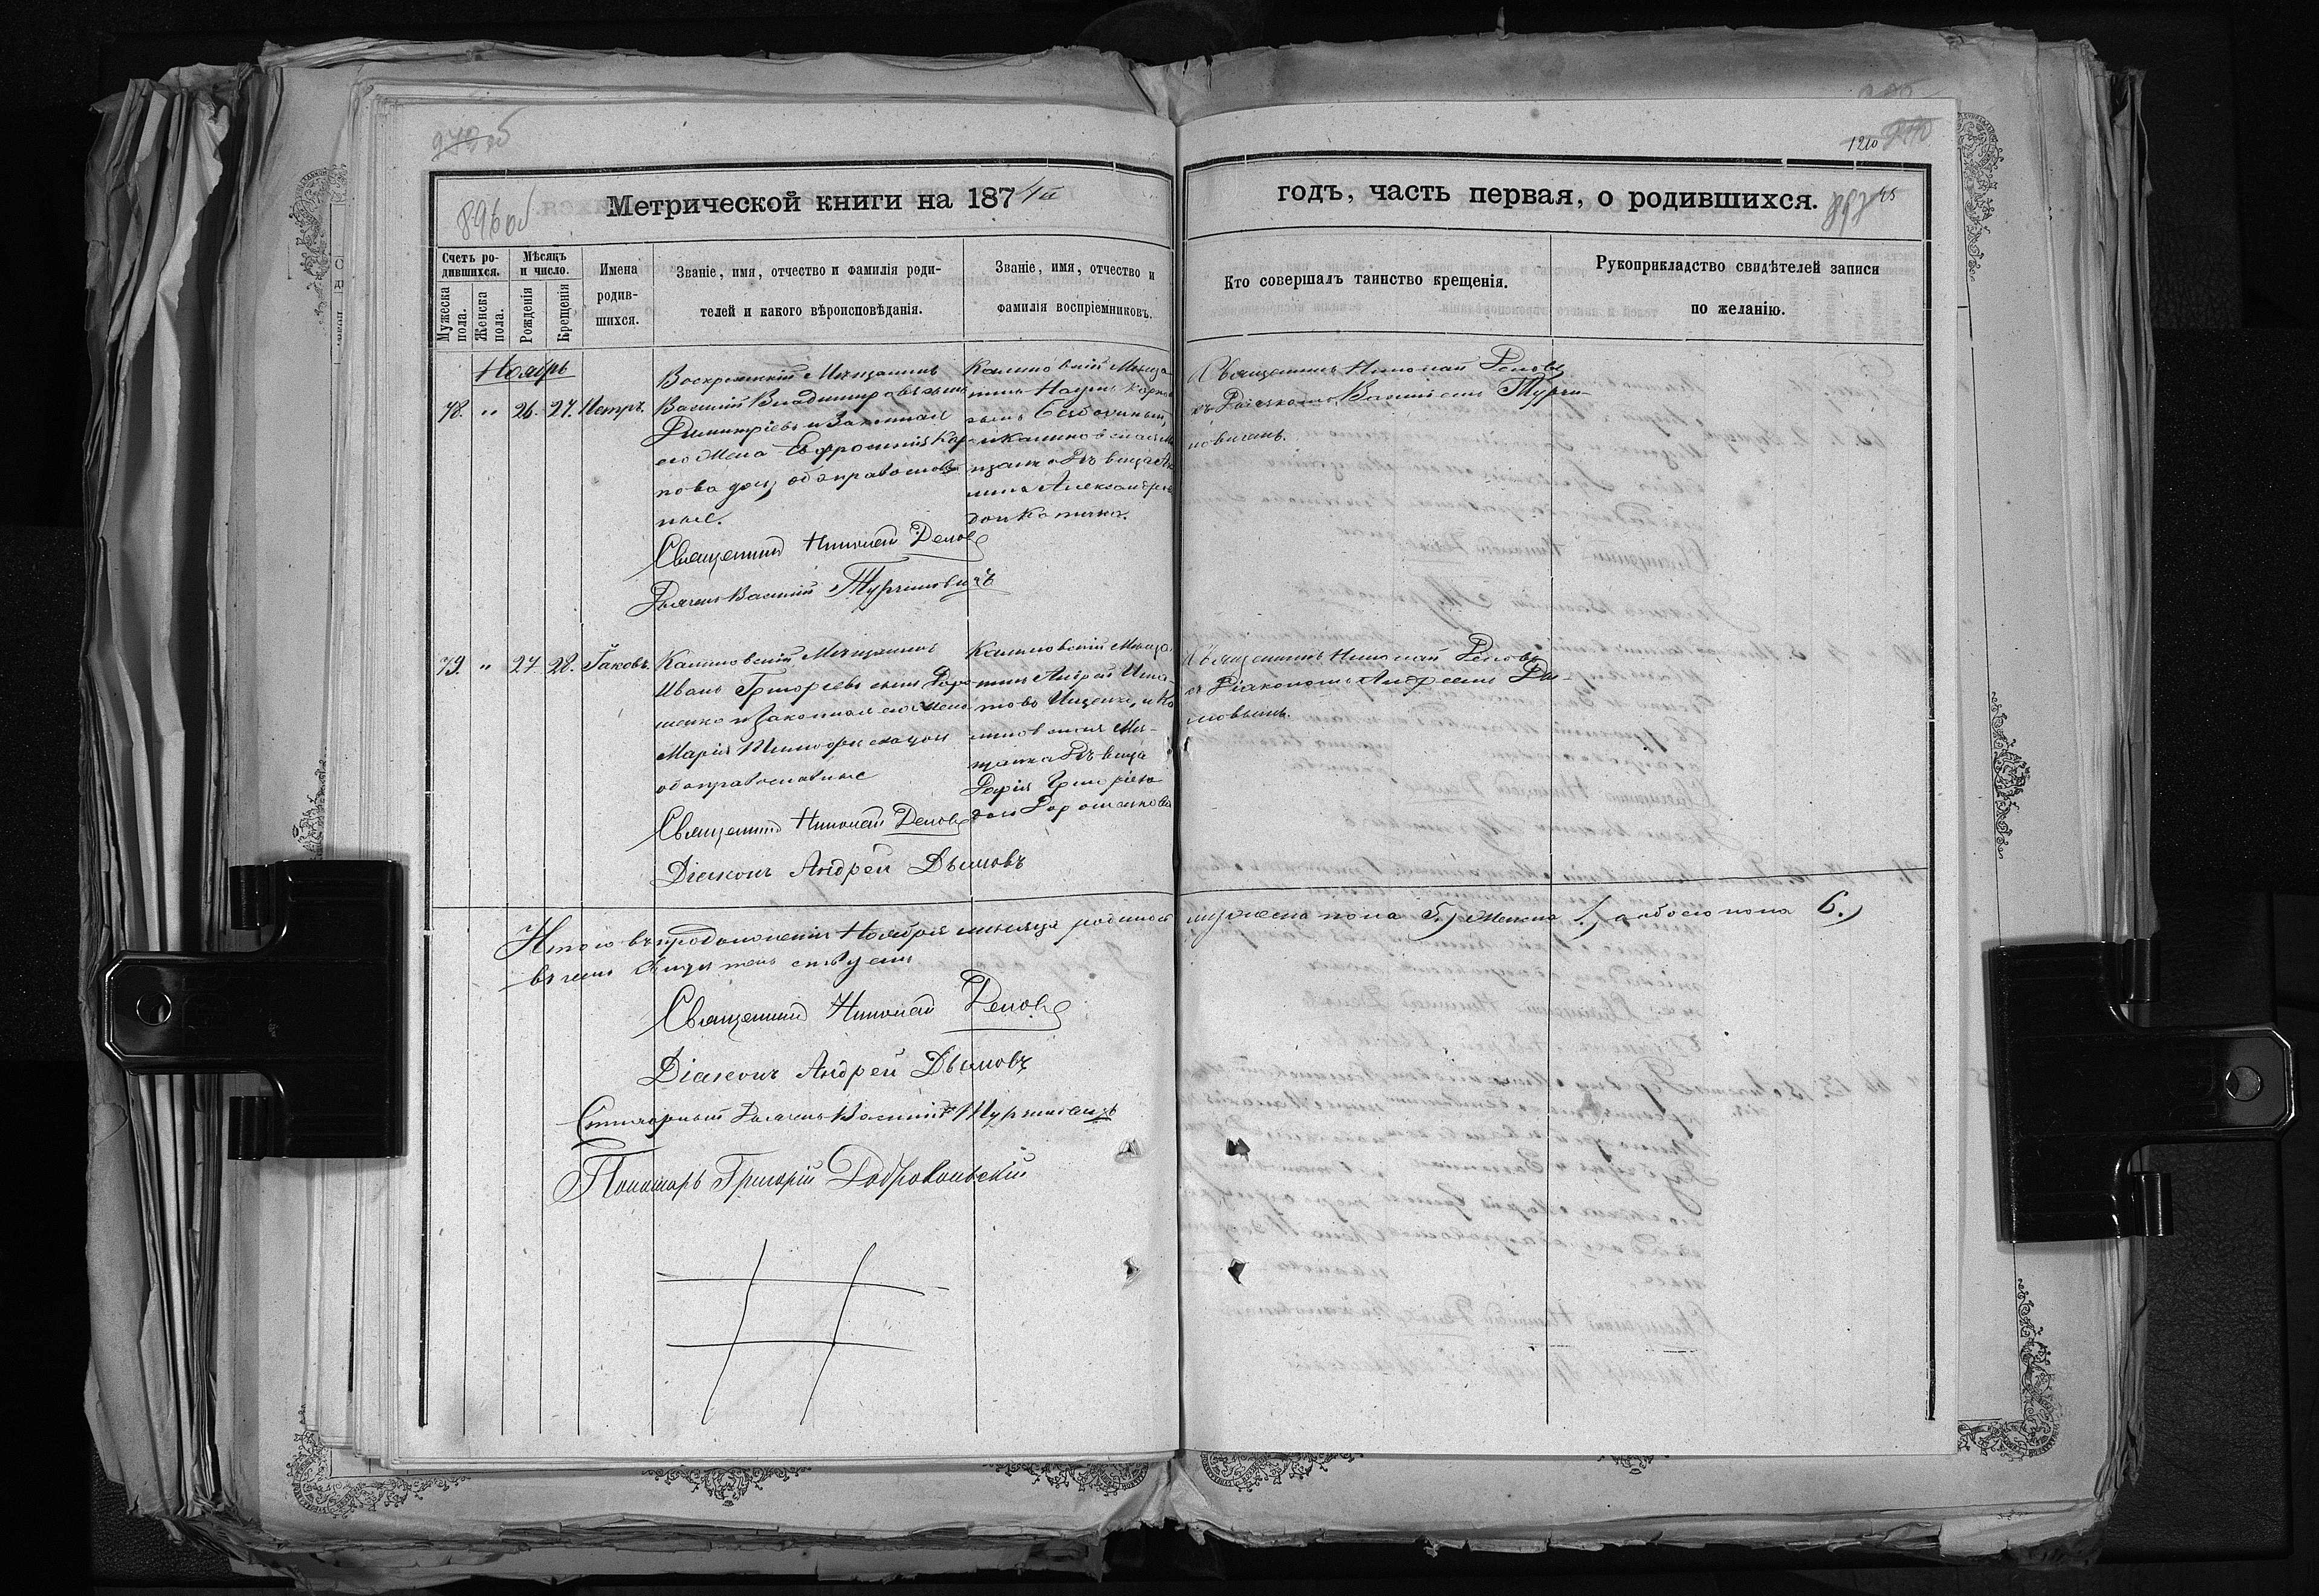 979об
1210
896об
Метрической книги на 1874й годъ, часть первая, о родившихся.
897
Счетъ родившихся.
Мужеска пола.
Женска пола.
Мѣсяцъ и число.
Рожденія
Крещенія
Имена родившихся.
Званіе, имя, отчество и фамилія родителей и какого вѣроисповѣданія.
Званіе, имя, отчество и фамилія воспріемниковъ.
Кто совершалъ таинство крещенія.
Рукоприкладство свидѣтелей записи по желанію.
Ноябрь
78. " 26. 27. Петръ.
Воскресенскій Мѣщанинъ
Василій Владиміровъ сынъ
Димитріевъ и Законная
его Жена Евфросинія Кар-
пова доч; оба православ
ные.
Священникъ Николай Деловъ
Дьячекъ Василій Турчиновичъ
Калиновскій Мѣща
нинъ
и Калиновская Мѣ
щанка Дѣвица
Александрова
доч
Священникъ Николай Деловъ
съ Дьячкомъ Василіемъ Турчи-
новичемъ.
79. " 27. 28. Іаковъ.
Калиновскій Мѣщанинъ
Иванъ Григорьевъ сынъ Доро
шенко и Законная его Жена
Марія Тимофеева доч
оба православные
Священникъ Николай Деловъ
Діаконъ Андрей Дымовъ
Калиновскій Мѣща
нинъ Андрей Игна
товъ Ищенко, и Ка
линовская Мѣ-
щанка Дѣвица
Дарія Григоріева
доч Дорошенкова
Священникъ Николай Деловъ
съ Діакономъ Андреемъ Ды-
мовымъ.
Итого въ продолженіи Ноября мѣсяца родилось мужеска пола 5.) женска 1.) а обоего пола 6.)
въ чемъ свидѣтельствуемъ
Священникъ Николай Деловъ
Діаконъ Андрей Дымовъ
Стихарный Дьячекъ Василій Турчиновичъ
Пономарь Григорій Добровольскій